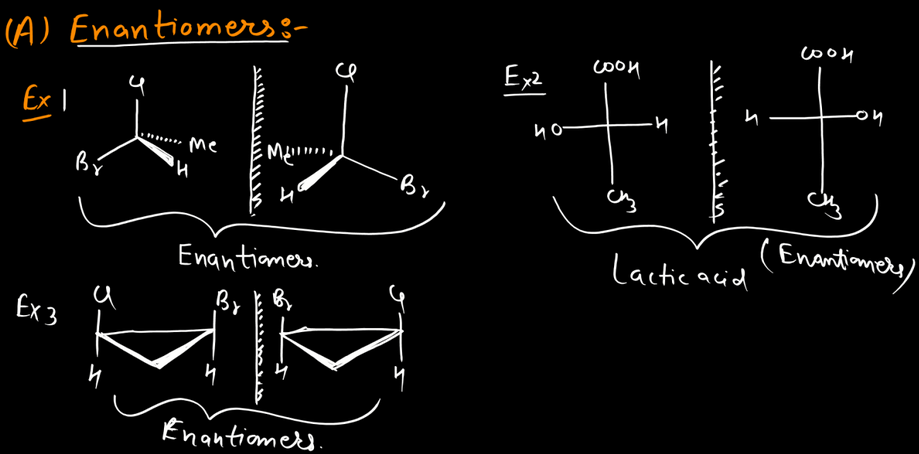 (A) Enantiomers:-
Ex 1
Cl
Br
Me
H
Cl
Me
H
Br
Enantiomers.
Ex2
COOH
HO
H
CH3
COOH
H
OH
CH3
Lactic acid (Enantiomers)
Ex 3
Cl
Br
H
H
Br
Cl
H
H
Enantiomers.